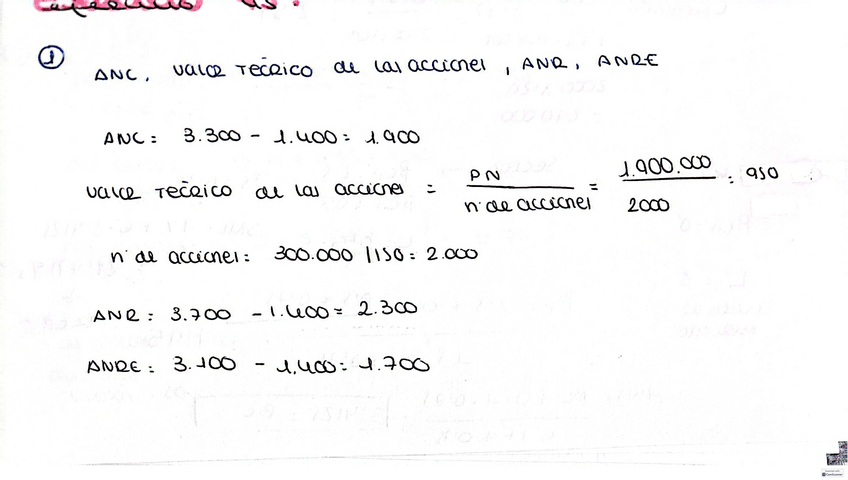 ①
ANC, valor teórico de las acciones, ANR, ANRE
ANC: 3.300 - 1.400 = 1.900
valor teórico de las acciones = PN / nº de acciones = 1.900.000 / 2000 = 950
nº de acciones: 300.000 / 150 = 2.000
ANR: 3.700 - 1.400 = 2.300
ANRE: 3.100 - 1.400 = 1.700